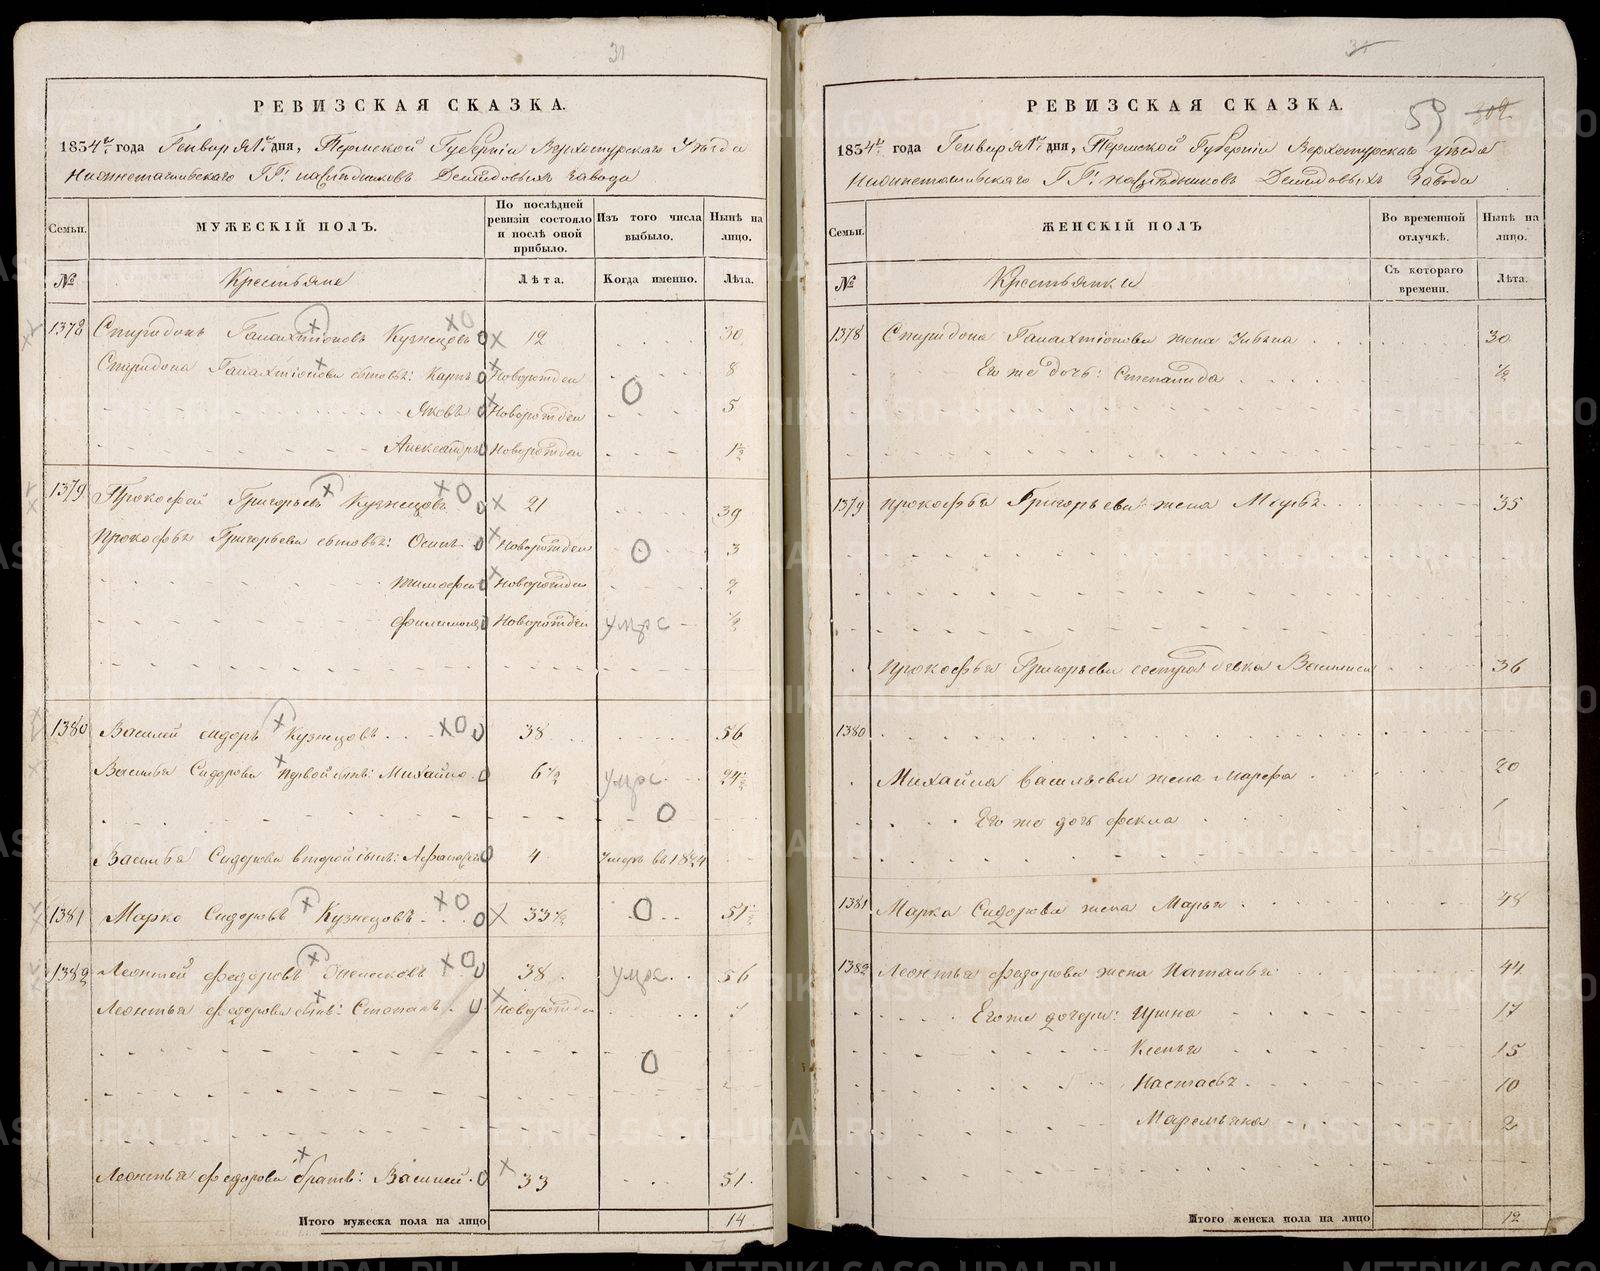 31
РЕВИЗСКАЯ СКАЗКА.
1834 года Генваря 1 дня, Пермской Губерніи Верхотурскаго Уѣзда
Нижнетагильскаго ГГ: наслѣдниковъ Демидовыхъ Завода
Семьи.
МУЖЕСКІЙ ПОЛЪ.
По послѣдней ревизіи состояло и послѣ оной прибыло.
Изъ того числа выбыло.
Нынѣ на лицо.
№
Крестьяне
Лѣта.
Когда именно.
Лѣта.
1378 Спиридонъ Галахтіоновъ Кузнецовъ 12 30
Спиридона Галахтіонова сыновья: Карпъ Новорожден 8
Яковъ Новорожден 5
Александръ Новорожден 1½
1379 Прокофей Григорьевъ Кузнецовъ 21 39
Прокофья Григорьева сыновья: Осипъ Новорожден 3
Тимофей Новорожден 2
Филимонъ Новорожден умре ½
1380 Василей Сидоръ Кузнецовъ 38 56
Василья Сидорова первой сынъ: Михайло 6½ умре 24½
Василья Сидорова второй сынъ: Афанасей 4 Умеръ въ 1824
1381 Марко Сидоровъ Кузнецовъ 33½ 51½
1382 Леонтей Федоровъ 38 умре 56
Леонтья Федорова сынъ: Степанъ Новорожден
Леонтья Федорова братъ: Василей 33 51
Итого мужеска пола на лицо 14
31
59 302
РЕВИЗСКАЯ СКАЗКА.
1834 года Генваря 1 дня, Пермской Губерніи Верхотурскаго уѣзда
Нижнетагильскаго ГГ: наслѣдниковъ Демидовыхъ Завода
Семьи.
ЖЕНСКІЙ ПОЛЪ
Во временной отлучкѣ.
Нынѣ на лицо.
№
Крестьянки
Съ котораго времени.
Лѣта.
1378 Спиридона Галахтіонова жена Улѣяна 30
Его же дочь: Степанида ½
1379 Прокофья Григорьева жена 35
Прокофья Григорьева сестра девка Василиса 36
1380
Михайла Васильева жена Марфа 20
Его же дочь Фекла 1
1381 Марка Сидорова жена Марья 48
1382 Леонтья Федорова жена Наталья 44
Его же дочери: Ирина 17
Ксенья 15
Настасья 10
Маремьяна 2
Итого женска пола на лицо 12
METRIKI.GASO-URAL.RU